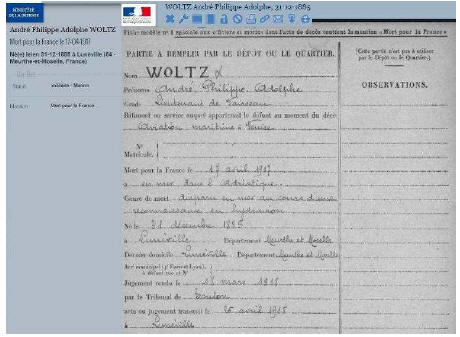 MINISTÈRE
DE LA DÉFENSE
WOLTZ André Philippe Adolphe, 31-12-1885
André Philippe Adolphe WOLTZ
Mort pour la France le 17-04-1917
Né(e) le/en 31-12-1885 à Lunéville (54 -
Meurthe-et-Moselle, France)
Statut
militaire - Marins
Mention
Mort pour la France
Fiche modèle n° 2 spéciale aux officiers et marins dont l'acte de décès contient la mention « Mort pour la France »
PARTIE A REMPLIR PAR LE DÉPOT OU LE QUARTIER.
Cette partie n'est pas à utiliser
par le Dépôt ou le Quartier.
Nom WOLTZ
Prénoms André, Philippe, Adolphe
Grade Lieutenant de Vaisseau
OBSERVATIONS.
Bâtiment ou service auquel appartenait le défunt au moment du décès
Aviation maritime à Venise
N°
Matricule.
Mort pour la France le 17 avril 1917
a en mer dans l'Adriatique
Genre de mort disparu en mer au cours d'une
reconnaissance en hydravion
Né le 31 décembre 1885
à Lunéville Département Meurthe et Moselle
Dernier domicile Lunéville Département Meurthe et Moselle
Jugement rendu le mars 1918
par le Tribunal de Toulon
acte ou jugement transcrit le avril 1918
à Lunéville